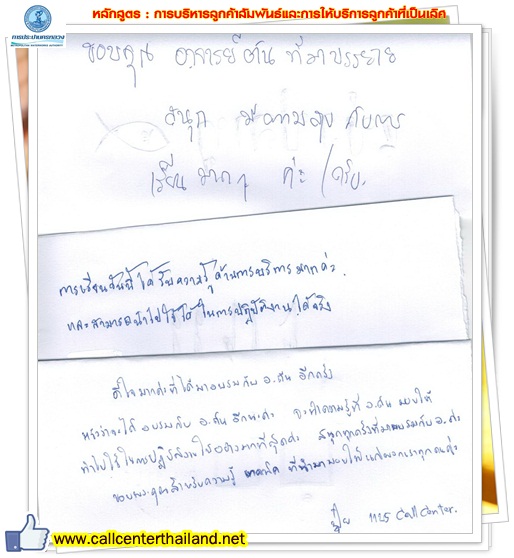 หลักสูตร : การบริหารลูกค้าสัมพันธ์และการให้บริการลูกค้าที่เป็นเลิศ
การประปานครหลวง
ขอบคุณ อาจารย์ตัน ที่มาบรรยาย
สนุก มีความสุข กับการ
เรียนมากๆ ค่ะ / ครับ.
การเรียนวันนี้ได้รับความรู้ด้านการบริการมากค่ะ.
และสามารถนำไปใช้ได้ในการปฏิบัติงานได้จริง
ดีใจมากค่ะที่ได้มาอบรมกับ อ.ตัน อีกครั้ง
หวังว่าจะได้อบรมกับ อ.ตัน อีกนะค่ะ จะนำความรู้ที่ อ.ตัน มอบให้
นำไปใช้ในการปฏิบัติงานให้อย่างมากที่สุดค่ะ ทุกครั้งที่มาอบรมกับ อ. ค่ะ
ขอบพระคุณสำหรับความรู้ เทคนิค ที่นำมามอบให้แก่พวกเราทุกคนค่ะ
ปุ้ย 1125 Call Center.
www.callcenterthailand.net